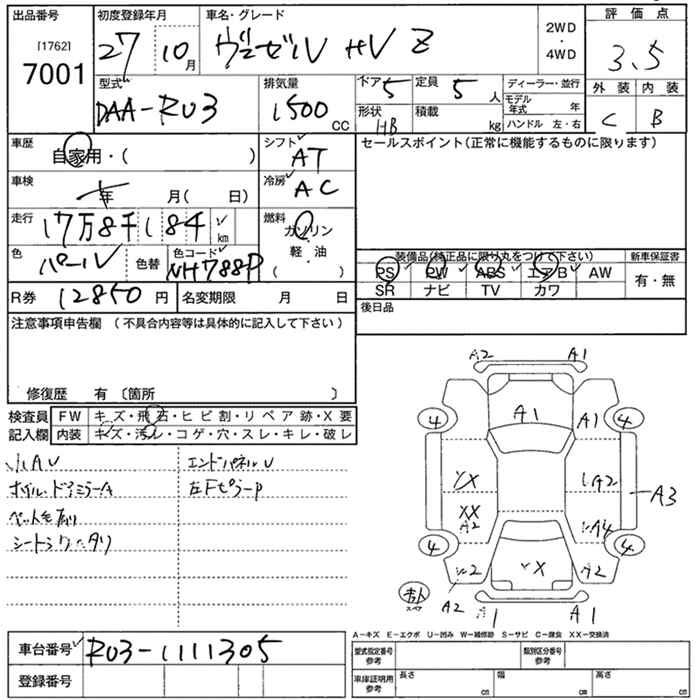 出品番号
[1762]
7001
初度登録年月
27 10月
車名・グレード
ヴェゼルV HV Z
2WD
・
4WD
評価点
3.5
型式
DAA-RU3
排気量
1500 CC
ドア 5
定員 5 人
形状 HB
積載 kg
ディーラー・並行
モデル年式 年
ハンドル 左・右
外装 内装
C B
車歴
自家用・( )
シフト
AT
セールスポイント(正常に機能するものに限ります)
車検
年 月( 日)
冷房
AC
走行
17万8千184 km
燃料
ガソリン
軽・油
( )
色
パール
色替
色コード
NH788P
装備品(純正品に限り丸をつけて下さい)
新車保証書
PS PW ABS エアB AW
有・無
SR ナビ TV カワ
R券 12850 円
名変期限 月 日
後日品
注意事項申告欄 (不具合内容等は具体的に記入して下さい)
修復歴 有 〔箇所 〕
検査員記入欄
FW キズ・飛石・ヒビ割・リペア跡・X要
内装 キズ・汚レ・コゲ・穴・スレ・キレ・破レ
小AU
エンドパネルU
オイル、ドアミラーA
左FピラーP
ペット毛有り
A2 A1
A1
A1
4 4
XX
A2
A3
XX
A2
A4
4 4
W2
X
A2
A2
1
A1
A-キズ E-エクボ U-凹み W-補修跡 S-サビ C-腐食 XX-交換済
車台番号
RU3-1111305
登録番号
型式指定番号
参考
類別区分番号
参考
車庫証明用
参考
長さ cm
幅 cm
高さ cm